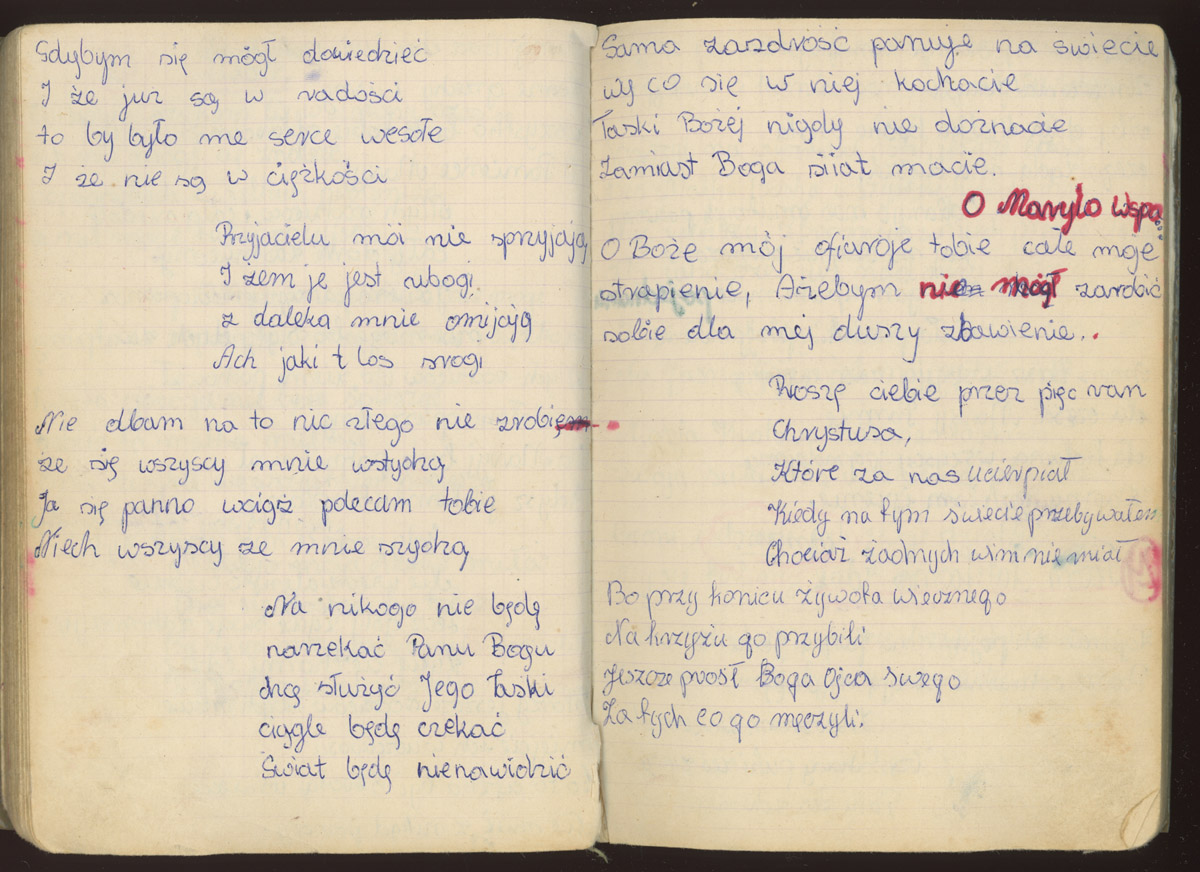 Gdybym się mógł dowiedzieć
I że już są w radości
to by było me serce wesołe
I że nie są w ciężkości
Przyjacielu mói nie sprzyjają
I żem je jest ubogi
z daleka mnie omijają
Ach jaki t los srogi
Nie dbam na to nic złego nie zrobię
że się wszyscy mnie wstydzą
Ja się panno wciąż polecam tobie
Niech wszyscy ze mnie szydzą
Na nikogo nie będę
narzekać Panu Bogu
chcę służyć Jego Łaski
ciągle będę czekać
Świat będę nienawidzić
Sama zazdrość panuje na świecie
wy co się w niej kochacie
Łaski Bożej nigdy nie doznacie
Zamiast Boga siiat macie.
O Marylo wspa...
O Boże mój ofiaroje tobie całe moje
strapienie, Ażebym nie mógł zarobić
sobie dla mej duszy zbawienie..
Proszę ciebie przez pięc ran
Chrystusa,
Które za nas ucierpiał
Kiedy na tym świecie przebywałem
Chociaż żadnych win nie miał
Bo przy konicu żywota wiecznego
Na krzyżu go przybili
Jeszcze prosł Boga Ojca swego
Za tych co go męczyli.